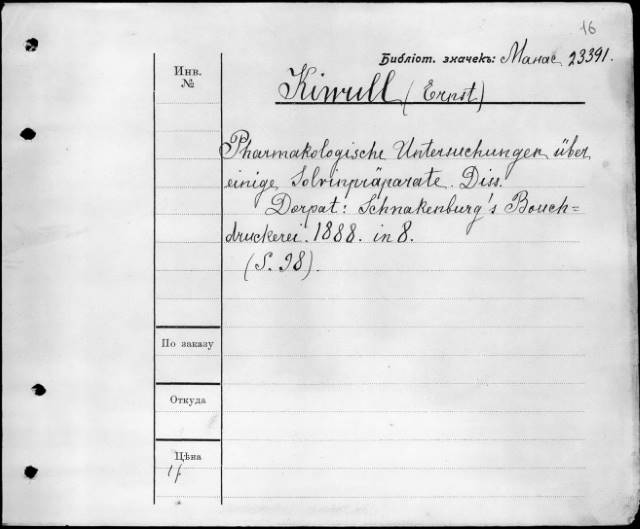 16
Библіот. значекъ: Манас. 23391.
Инв.
№
Kiwull (Ernst)
Pharmakologische Untersuchungen über
einige Solvinpräparate. Diss.
Dorpat: Schnakenburg's Bouch=
druckerei. 1888. in 8.
(S. 98).
По заказу
Откуда
Цѣна